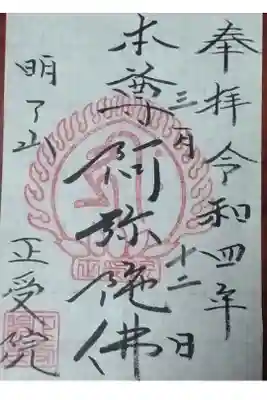 奉拝令和四年
三月十二日
本尊阿弥陀佛
明了山
正受院